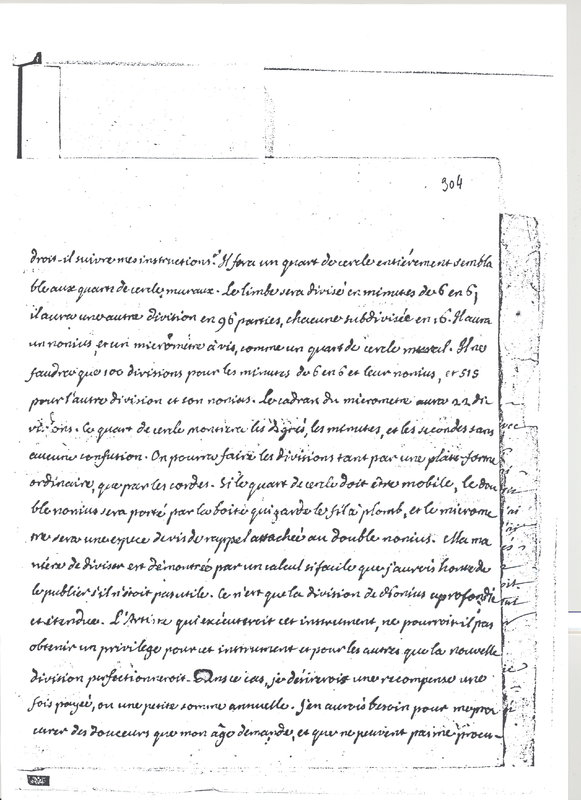 304
droit-il suivre mes instructions? Il fera un quart de cercle entiérement sembla
ble aux quarts de cercle muraux. Le limbe sera divisé en minutes de 6 en 6;
il aura une autre division en 96 parties, chacune subdivisée en 16. Il aura
un nonius, et un micrométre à vis, comme un quart de cercle mural. Il ne
faudra que 100 divisions pour les minutes de 6 en 6 et leur nonius, et 515
pour l'autre division et son nonius. Le cadran du micrometre aura 22 di
visions. Le quart de cercle montrera les degrés, les minutes, et les secondes sans
aucune confusion. On pourra faire les divisions tant par une platte-forme
ordinaire, que par les cordes. Si le quart de cercle doit être mobile, le dou
ble nonius sera porté par la boite qui garde le fil à plomb, et le microme
tre sera une espece de vis de rappel attachée au double nonius. Ma ma
niére de diviser est démontrée par un calcul si facile que j'aurois honte de
le publier s'il n'étoit pas utile. Ce n'est que la division de Nonius aprofondie
et étendue. L'Artiste qui exécuteroit cet instrument, ne pourroit-il pas
obtenir un privilége pour cet instrument et pour les autres que la nouvelle
division perfectionneroit. Dans ce cas, je désirerois une recompense une
fois payée, ou une petite somme annuelle. J'en aurois besoin pour me pro
curer des douceurs que mon âge demande, et que ne peuvent pas me procu-